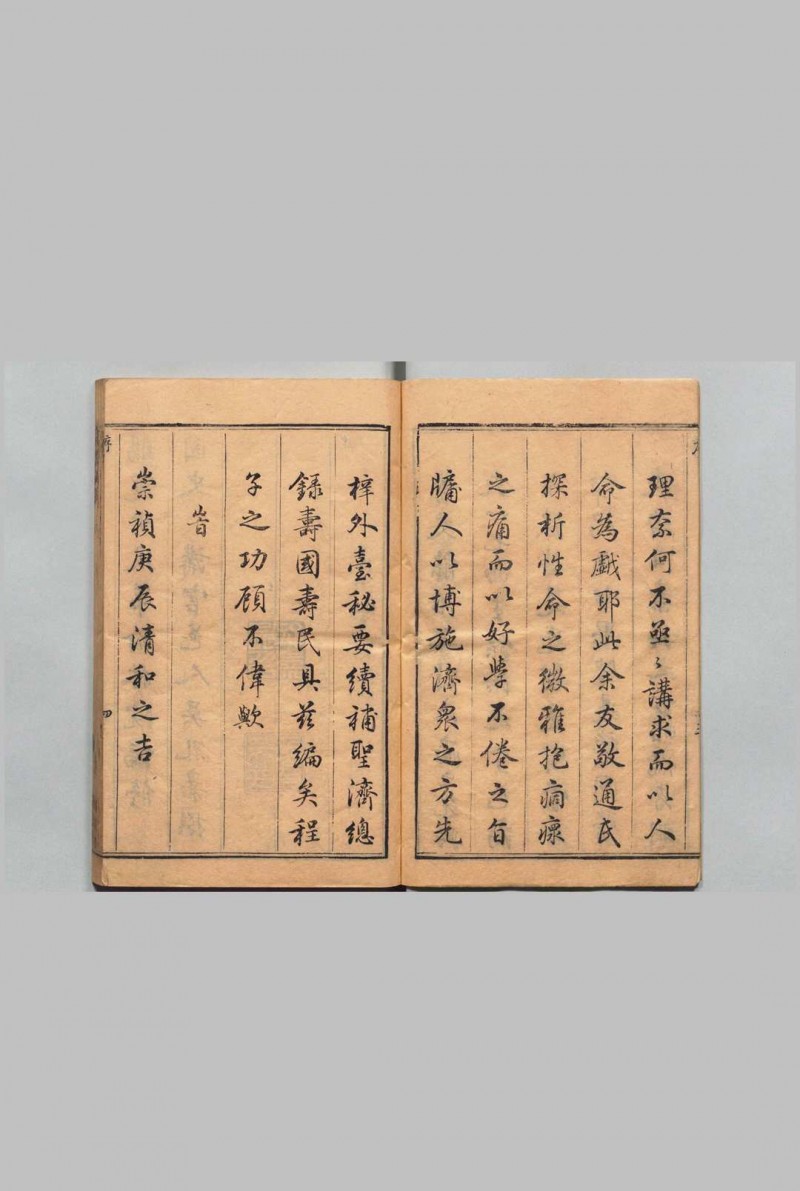 理奈何不亟〻講求而以人
命為戲耶此余友敬通氏
探析性命之微雅抱痌瘝
之痛而以好學不倦之旨
牖人以博施濟衆之方先
梓外臺秘要續補聖濟總
錄壽國壽民具茲編矣程
子之功顧不偉歟
旹
崇禎庚辰清和之吉
序
四